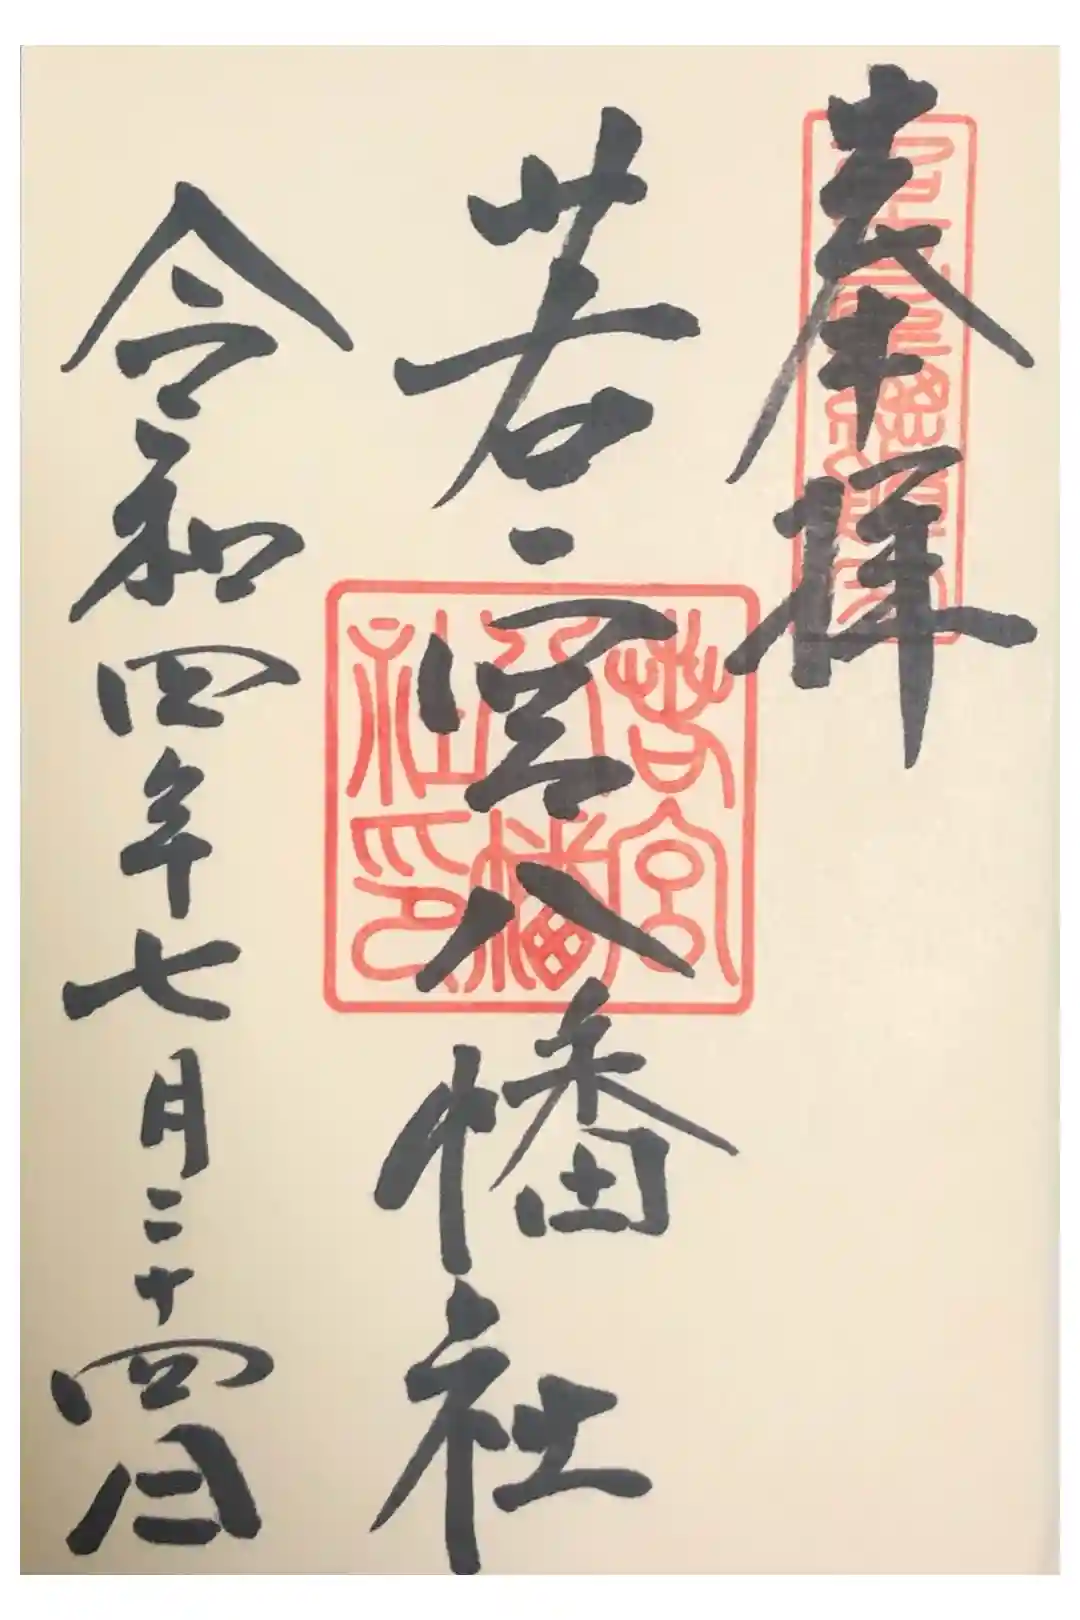 奉拝
若宮八幡社
令和四年七月二十四日
若宮
八幡
社印